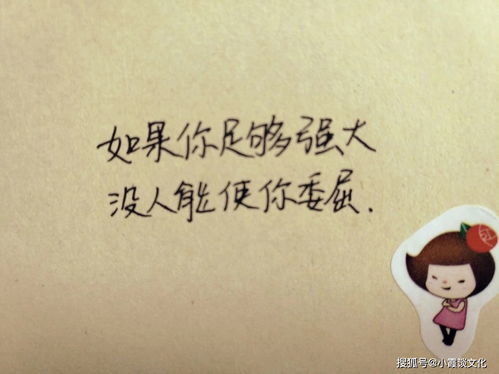 如果你足够强大
没人能使你委屈.
搜狐号@小霞谈文化